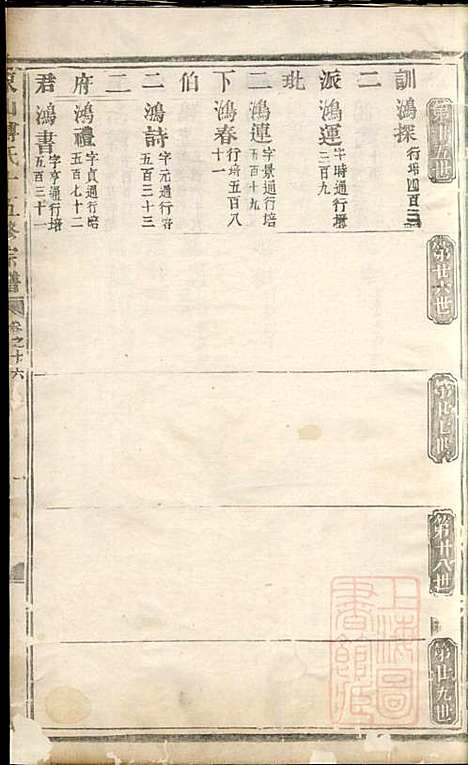 第廿五世
第廿六世
第廿七世
第廿八世
第廿九世
訓二派玭下伯二二府君
鴻探 行培四百三
鴻運 字時通行增二百九
鴻連 字景通行培五百十九
鴻春 行培五百八十一
鴻詩 字元通行培五百三十三
鴻禮 字貞通行培五百七十二
鴻書 字亨通行培五百三十一
傅氏 五修宗譜
卷之十六
上海圖書館藏